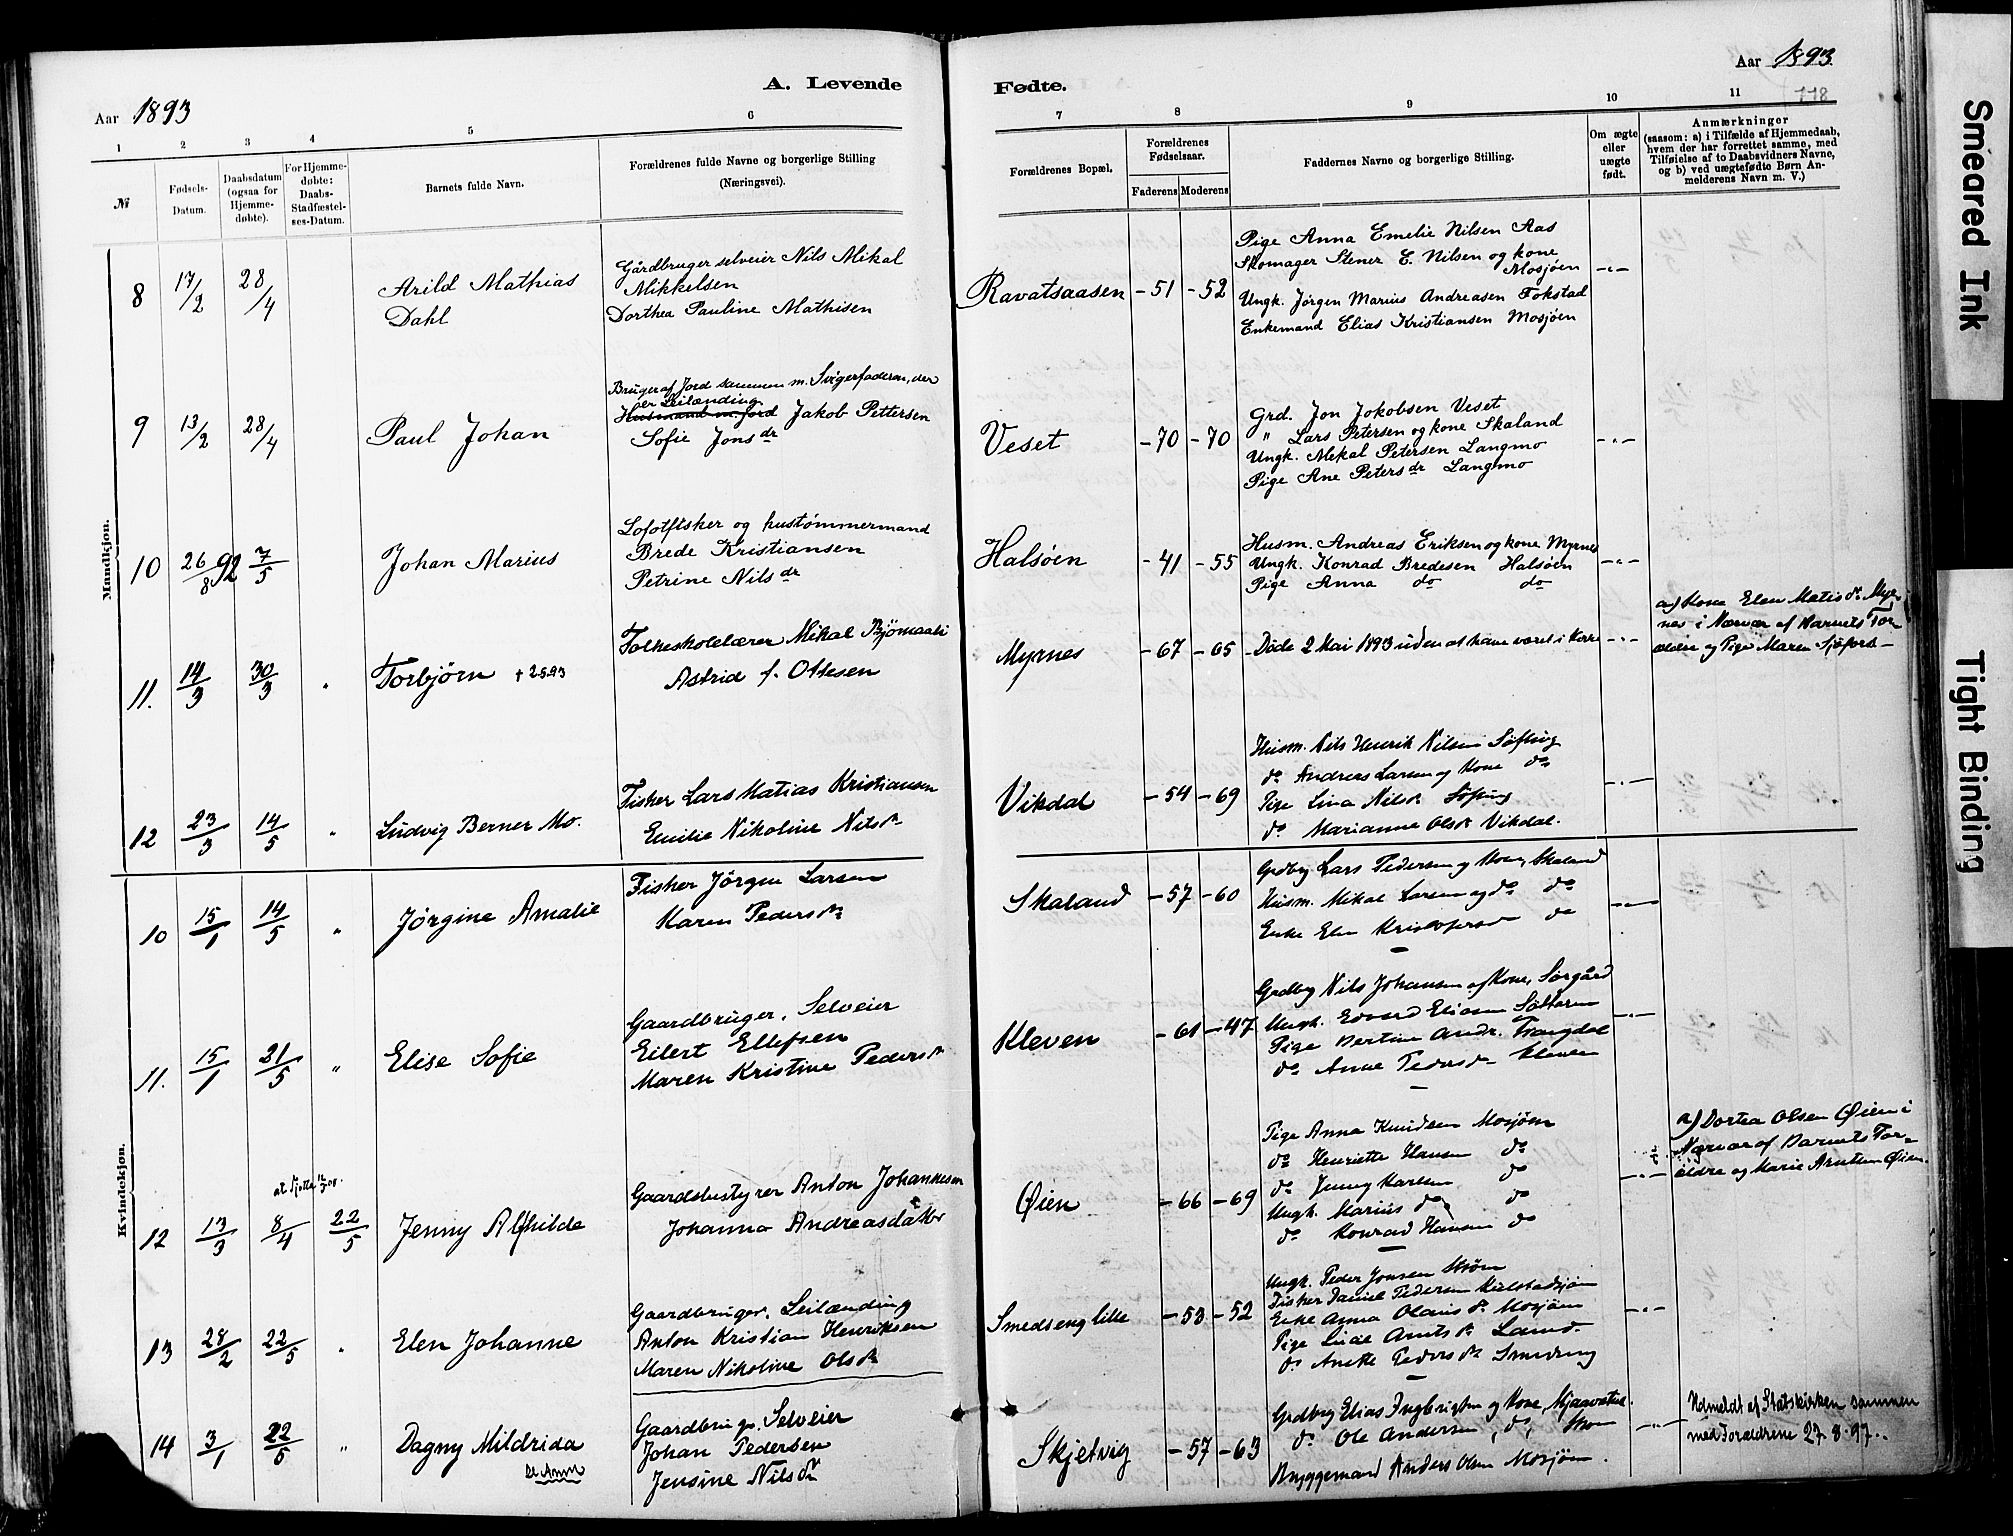 Aar 1893
A. Levende
1 2 3 4 5 6
№
Fødsels-Datum.
Daabsdatum (ogsaa for Hjemmedøbte).
For Hjemmedøbte: Daabs-Stadfæstelses-Datum.
Barnets fulde Navn.
Forældrenes fulde Navne og borgerlige Stilling
(Næringsvei).
Mandkjøn.
8 17/2 28/4
Arild Mathias
Dahl
Gårdbruger selveier Nils Mikal
Mikkelsen
Dorthea Pauline Mathisen
9 13/2 28/4
Paul Johan
Bruger af Jord sammen m. Svigerfaderen, der
er Leilænding
Husmand m. Jord Jakob Pettersen
Sofie Jonsdr
10 26/8 92 7/5
Johan Marius
Lofotfisker og hustømmermand
Brede Kristiansen
Petrine Nilsdr
11. 14/3 30/3 "
Torbjørn + 2.5.93
Folkeskolelærer Mikal Bjömaali
Astrid f. Ottesen
12 23/3 14/5 "
Ludvig Berner Mo.
Fisker Lars Matias Kristiansen
Emilie Nikoline Nilsdr
Kvindekjøn.
10 15/1 14/5 "
Jørgine Amalie
Fisker Jörgen Larsen
Karen Pedersdr
11. 15/1 21/5 "
Elise Sofie
Gaardbruger, Selveier
Eilert Ellefsen
Maren Kristine Pedersdr
12 13/3 8/4 22/5
Jenny Alfhilde
Gaardsbustyrer Anton Johannesen
Johanna Andreasdatter
13 28/2 22/5 "
Elen Johanne
Gaardbruger, Leilænding
Anton Kristian Henriksen
Maren Nikoline Olsdr
14 3/1 22/5 "
Dagny Mildrida
Gaardbruger, Selveier
Johan Pedersen
Jensine Nilsdr
Fødte.
Aar 1893
118
7 8 9 10 11
Forældrenes Bopæl.
Forældrenes Fødselsaar.
Faderens Moderens
Faddernes Navne og borgerlige Stilling.
Om ægte eller uægte født.
Anmærkninger
(saasom: a) i Tilfælde af Hjemmedaab,
hvem der har forrettet samme, med
Tilføielse af to Daabsvidners Navne,
og b) ved uægtefødte Børn Anmelderens Navn m. V.)
Ravatsaasen - 51 - 52
Pige Anna Emelie Nilsen Aas
Skomager Stener E. Nilsen og kone
Mosjøen
Ungk. Jörgen Marius Andreasen Fokstad
Enkemand Elias Kristiansen Mosjöen
Veset - 70 - 70
Grd. Jon Jokobsen Veset
" Lars Petersen og kone Skaland
Ungk. Mekal Petersen Langmo
Pige Ane Petersdr Langmo
Halsöen - 41 - 55
Husm. Andreas Eriksen og kone Myrnes
Ungk. Konrad Bredesen Halsöen
Pige Anna do do
Myrnes - 67 - 65
Døde 2 Mai 1893 uden at have været i Kirke
a) Kone Elen Matisdr Myrnes
i Nærvær af Barnets Forældre
og Pige Maren Sjøfors
Vikdal - 54 - 69
Husm. Nils Henrik Nilsen Söfting
do Andreas Larsen og Kone do
Pige Lina Nilsdr Söfting
do Marianne Olsdr Vikdal.
Skaland - 57 - 60
Grdbrg Lars Pedersen og Kone, Skaland
Husm. Mikal Larsen og do do
Enke Elen Kristofersd do
Kleven - 61 - 47
Grdbrg Nils Johansen og Kone, Sörgård
Ungk. Edvard Eliasen
Pige Bertine Andr.
do Anne Pedersdr Kleven
Øien - 66 - 69
Pige Anna Knudsen Mosjøen
do Henriette Hansen do
do Jenny Karlsen do
Ungk. Marius do do
do Konrad Hansen do
a) Dortea Olsen Øien i
Nærvær af Barnets Forældre
og Marie Arntsen Øien.
Smedseng lille - 53 - 52
Ungk. Peder Jonsen
Fisker Daniel Pedersen
Enke Anna Olausdr Mosjøen
Pige Arntsdr
do Anette Pedersdr Smedseng
Skjetvig - 57 - 63
Grdbrg Elias Ingbrigtsen og Kone,
do Ole Andersen, do,
Bryggemand Anders Olsen Mosjøen.
Udmeldt af Statskirken sammen
med Forældrene 27.8.97.
Smeared Ink
Tight Binding